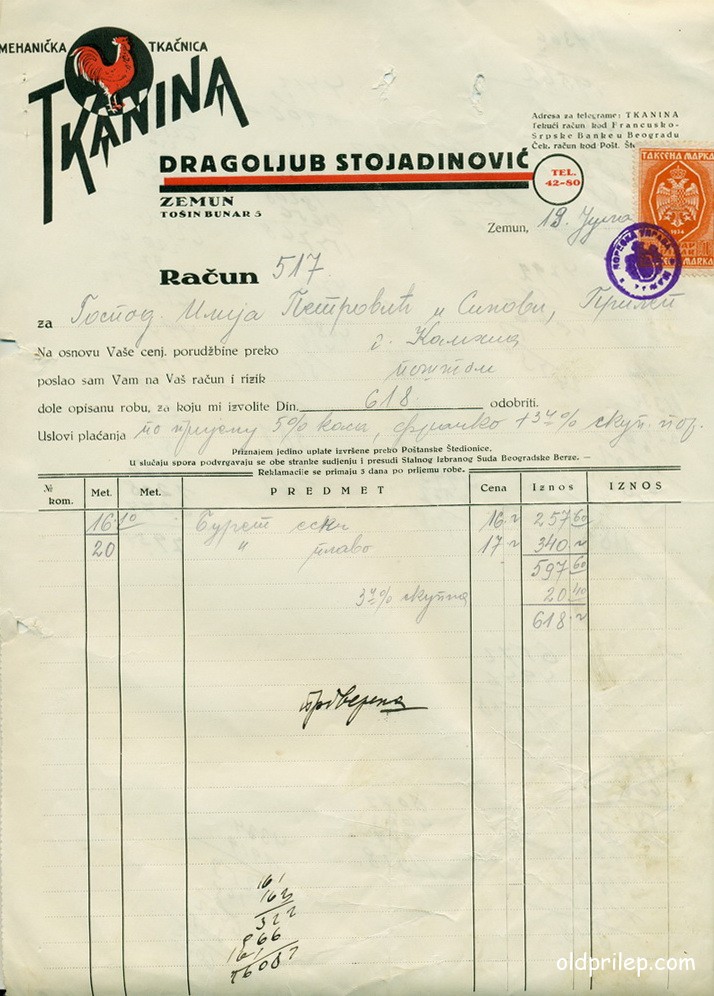 MEHANIČKA TKAČNICA
TKANINA
Adresa za telegrame: TKANINA
Tekući račun kod Francusko-
Srpske Banke u Beogradu
Ček. račun kod Pošt. Šte
DRAGOLJUB STOJADINOVIĆ
TEL.
42-80
ZEMUN
TOŠIN BUNAR 5
ТАКСЕНА МАРКА
1934
Zemun, 19. Јула
Račun 517.
za Господ. Илија Петровић и Синови, Прилеп
Na osnovu Vaše cenj. porudžbine preko г. Калхина
poslao sam Vam na Vaš račun i rizik поштом
dole opisanu robu, za koju mi izvolite Din. 618 odobriti.
Uslovi plaćanja по пријему 5% каса, франко + % скуп. пор.
Priznajem jedino uplate izvršene preko Poštanske Štedionice,
U slučaju spora podvrgavaju se obe stranke sudjenju i presudi Stalnog Izbranog Suda Beogradske Berze. —
Reklamacije se primaju 3 dana po prijemu robe.
№ kom. Met. Met. PREDMET Cena Iznos IZNOS
16.10 Бурет 16. 257 60
20 " плаво 17 340
597 60
% скупна 20 40
618
161
162
322
966
161
26082
oldprilep.com